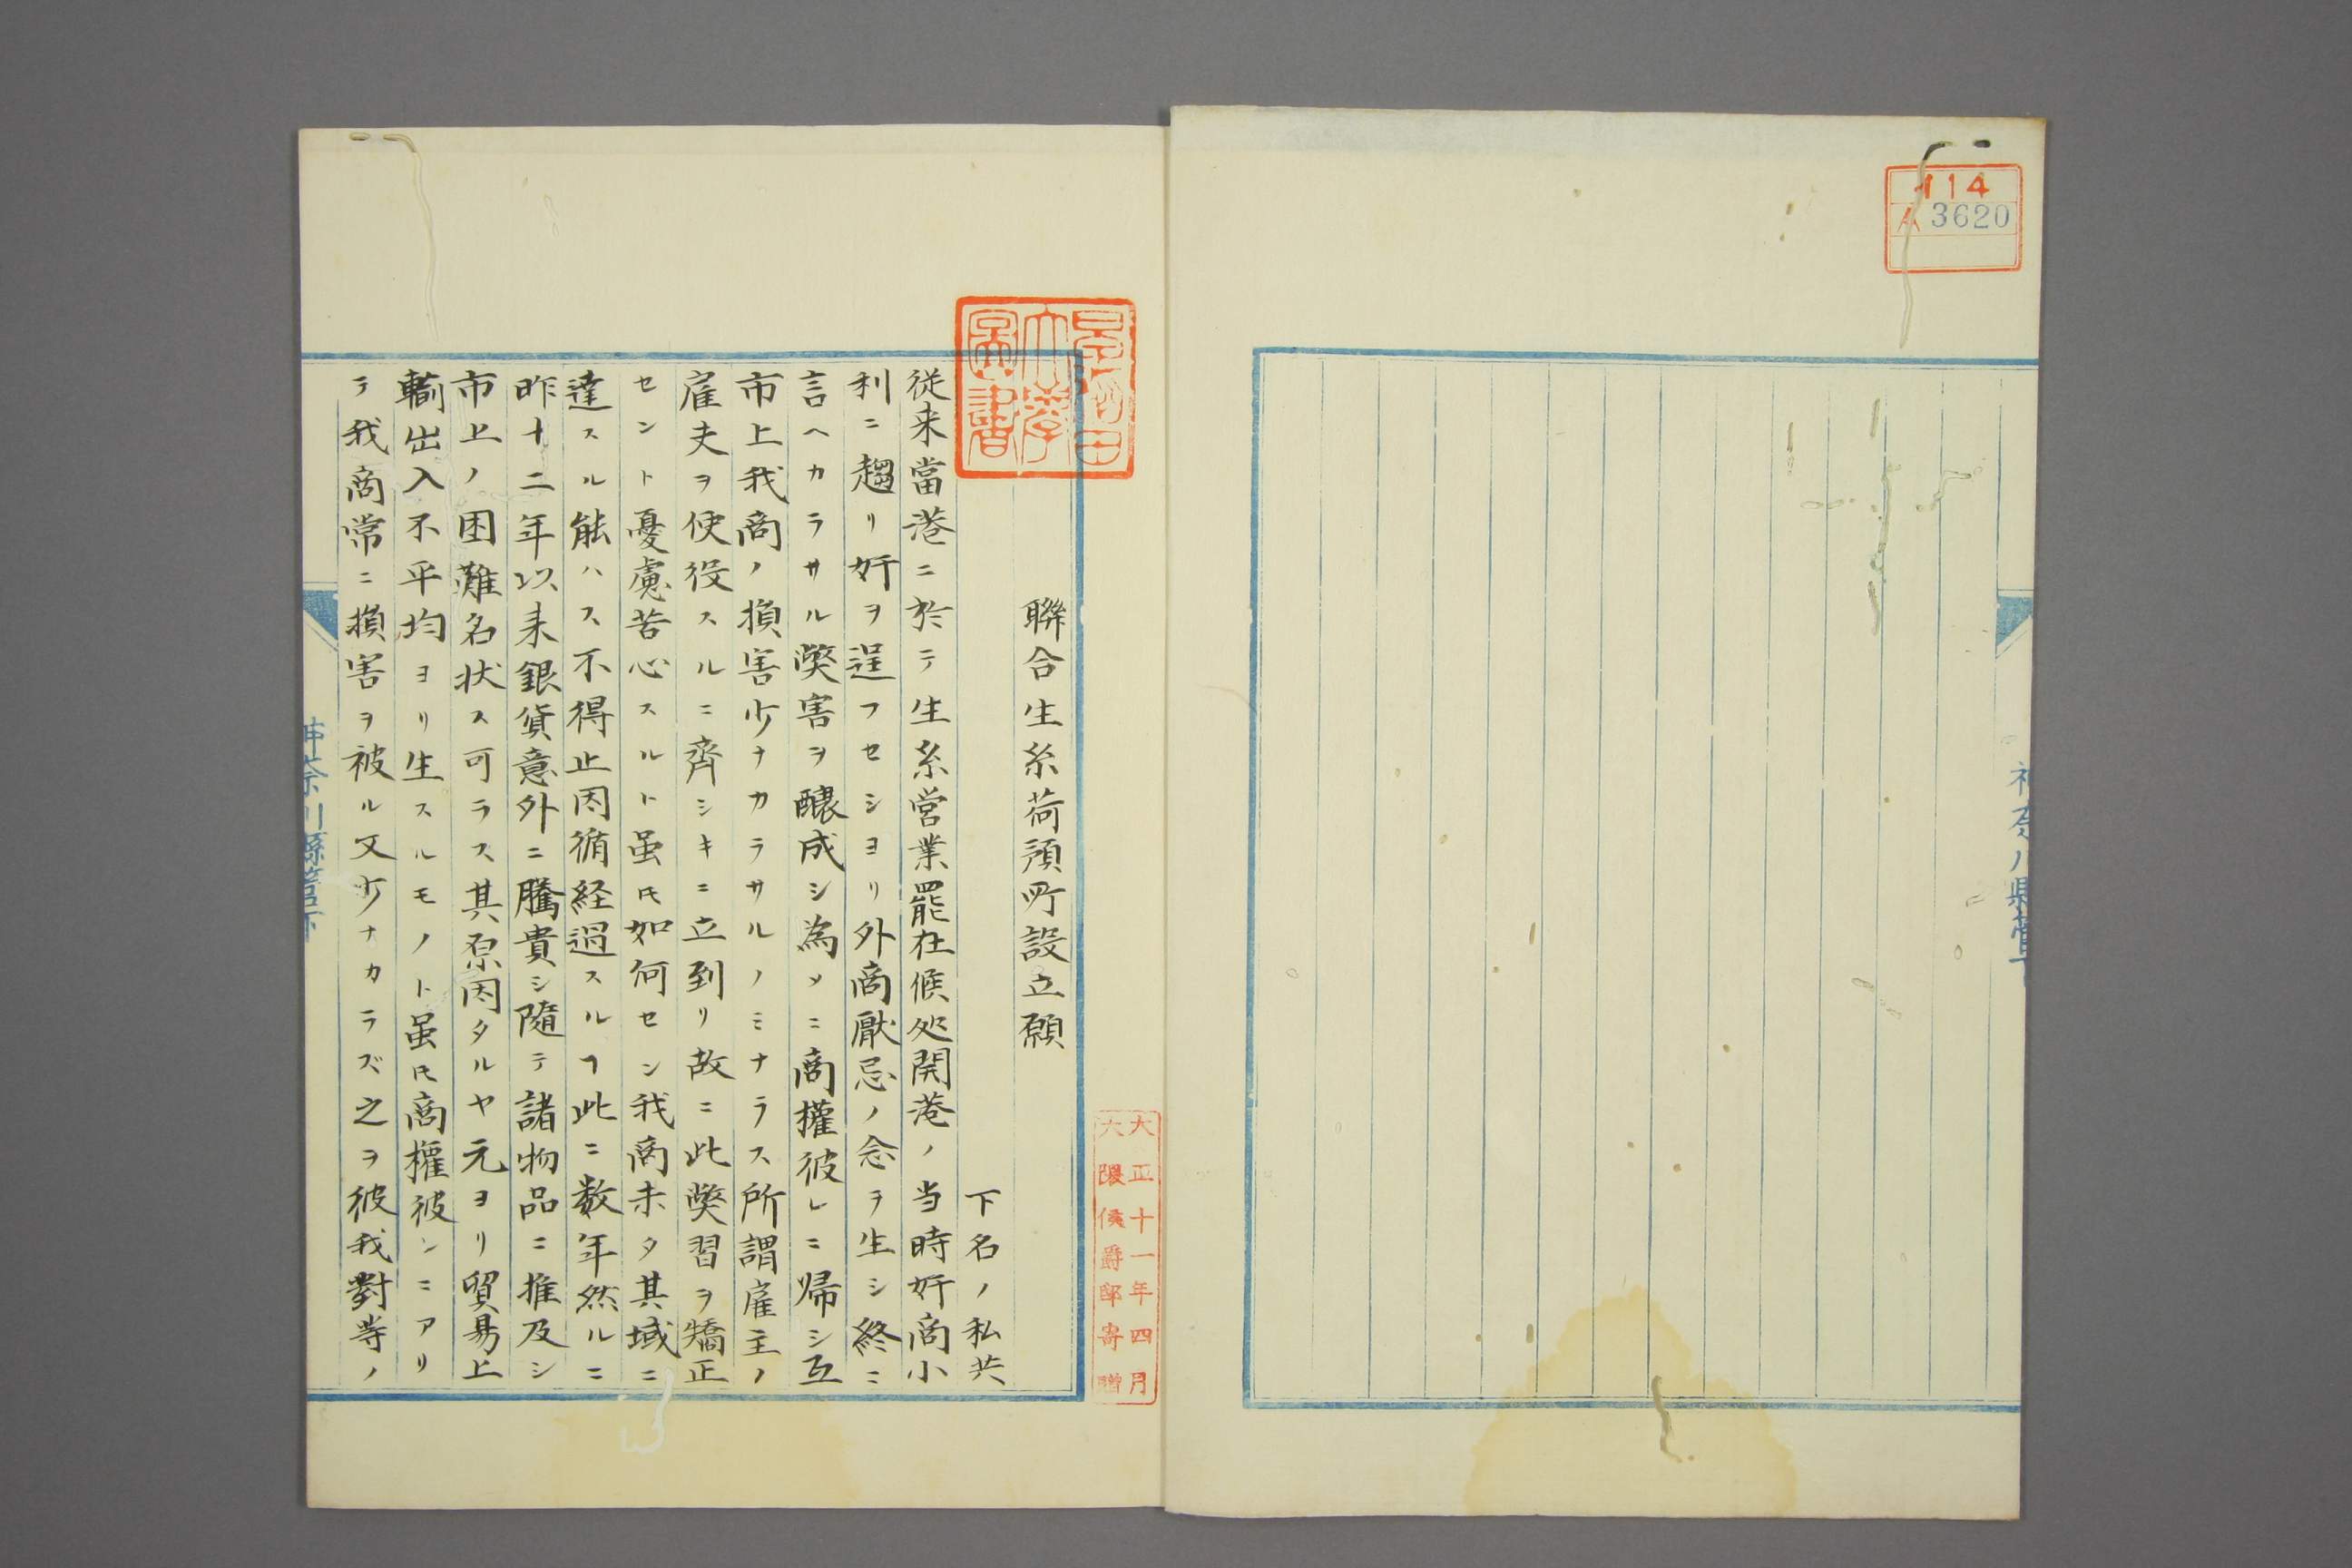 114
A 3620
神奈川県管下
早稲田大學圖書
大正十一年四月
大隈侯爵邸寄贈
聯合生糸荷預所設立願
下名ノ私共
従来當港ニ於テ生糸営業罷在候処開港ノ当時奸商小
利ニ趨リ奸ヲ逞フセシヨリ外商厭忌ノ念ヲ生シ終ニ
言ヘカラサル弊害ヲ醸成シ為メニ商權彼レニ帰シ互
市上我商ノ損害少ナカラサルノミナラス所謂雇主ノ
雇夫ヲ使役スルニ齊シキニ立到リ故ニ此弊習ヲ矯正
セント憂慮苦心スルト虽𪜈如何セン我商未タ其域ニ
達スル能ハス不得止因循経過スルヿ此ニ数年然ルニ
昨十二年以来銀貨意外ニ騰貴シ隨テ諸物品ニ推及シ
市上ノ困難名状ス可ラス其原因タルヤ元ヨリ貿易上
輸出入不平均ヨリ生スルモノト虽𪜈商權彼レニアリ
テ我商常ニ損害ヲ被ル又少ナカラズ之ヲ彼我對等ノ
神奈川縣管下